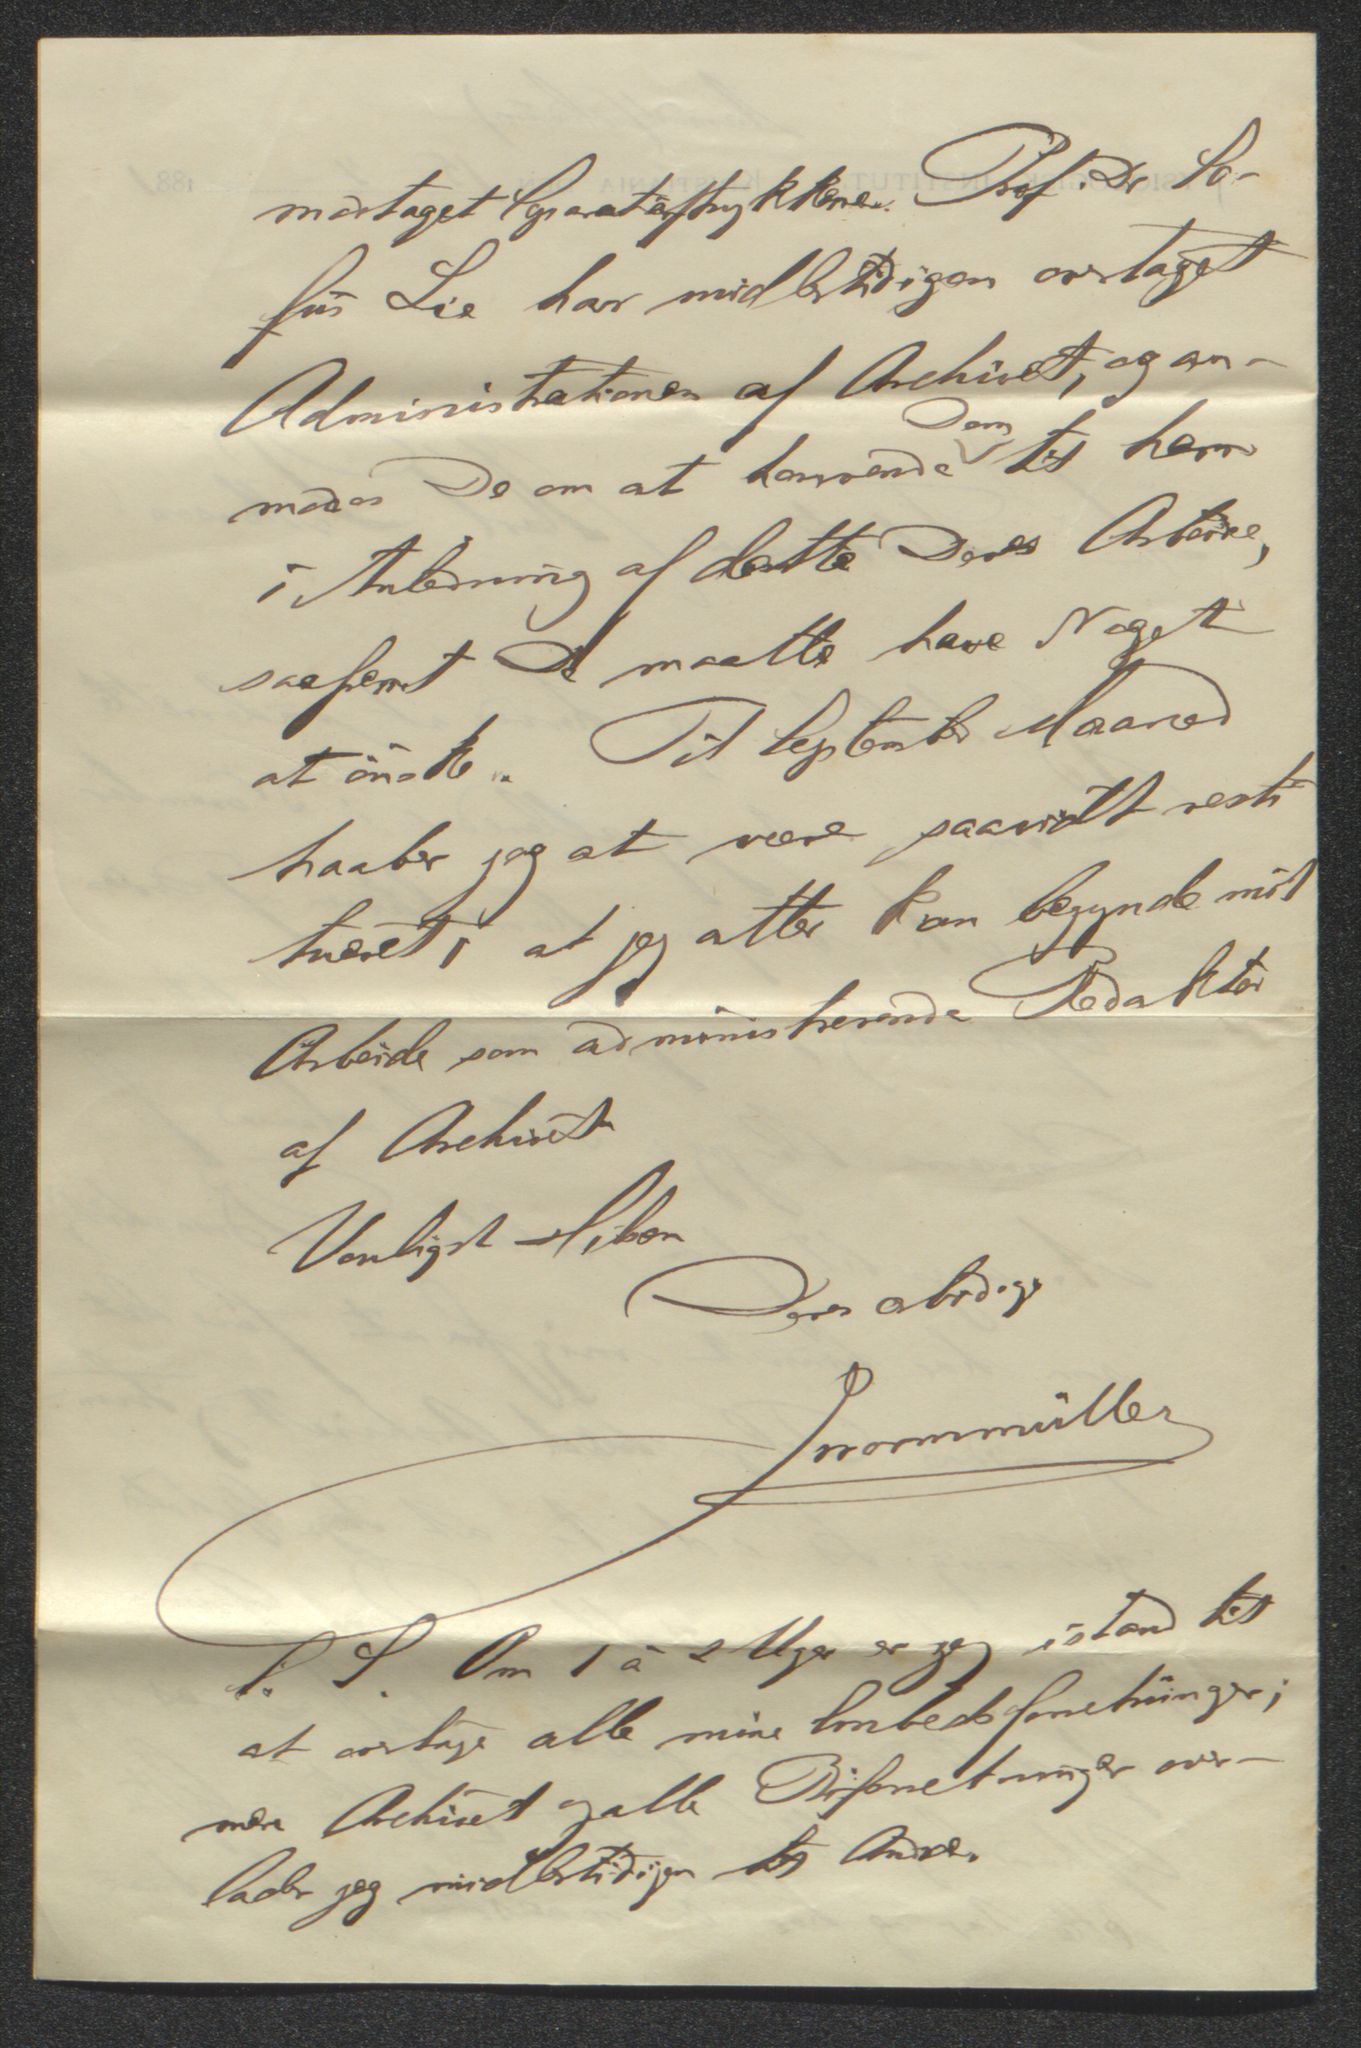 modtaget Separataftrykkene. Prof. Dr So-
fus Lie har midlertidigen overtaget
Administrationen af Archivet, og an-
modes De om at henvende Dem til ham
i Anledning af dette Deres Arbeide,
saafremt De maatte have Noget
at önske. Til September Maaned
haaber jeg at være saavidt resti
tueret, at jeg atter kan begynde mit
Arbeide som administrerende Redaktör
af Archivet
Venligst Hilsen
Deres ærbödige
Worm Müller
P. S. Om 1 à 2 Uger er jeg istand til
at overtage alle mine Embedsforretninger;
men Archivet og alle Biforretninger over-
lader jeg midlertidigen til Andre.